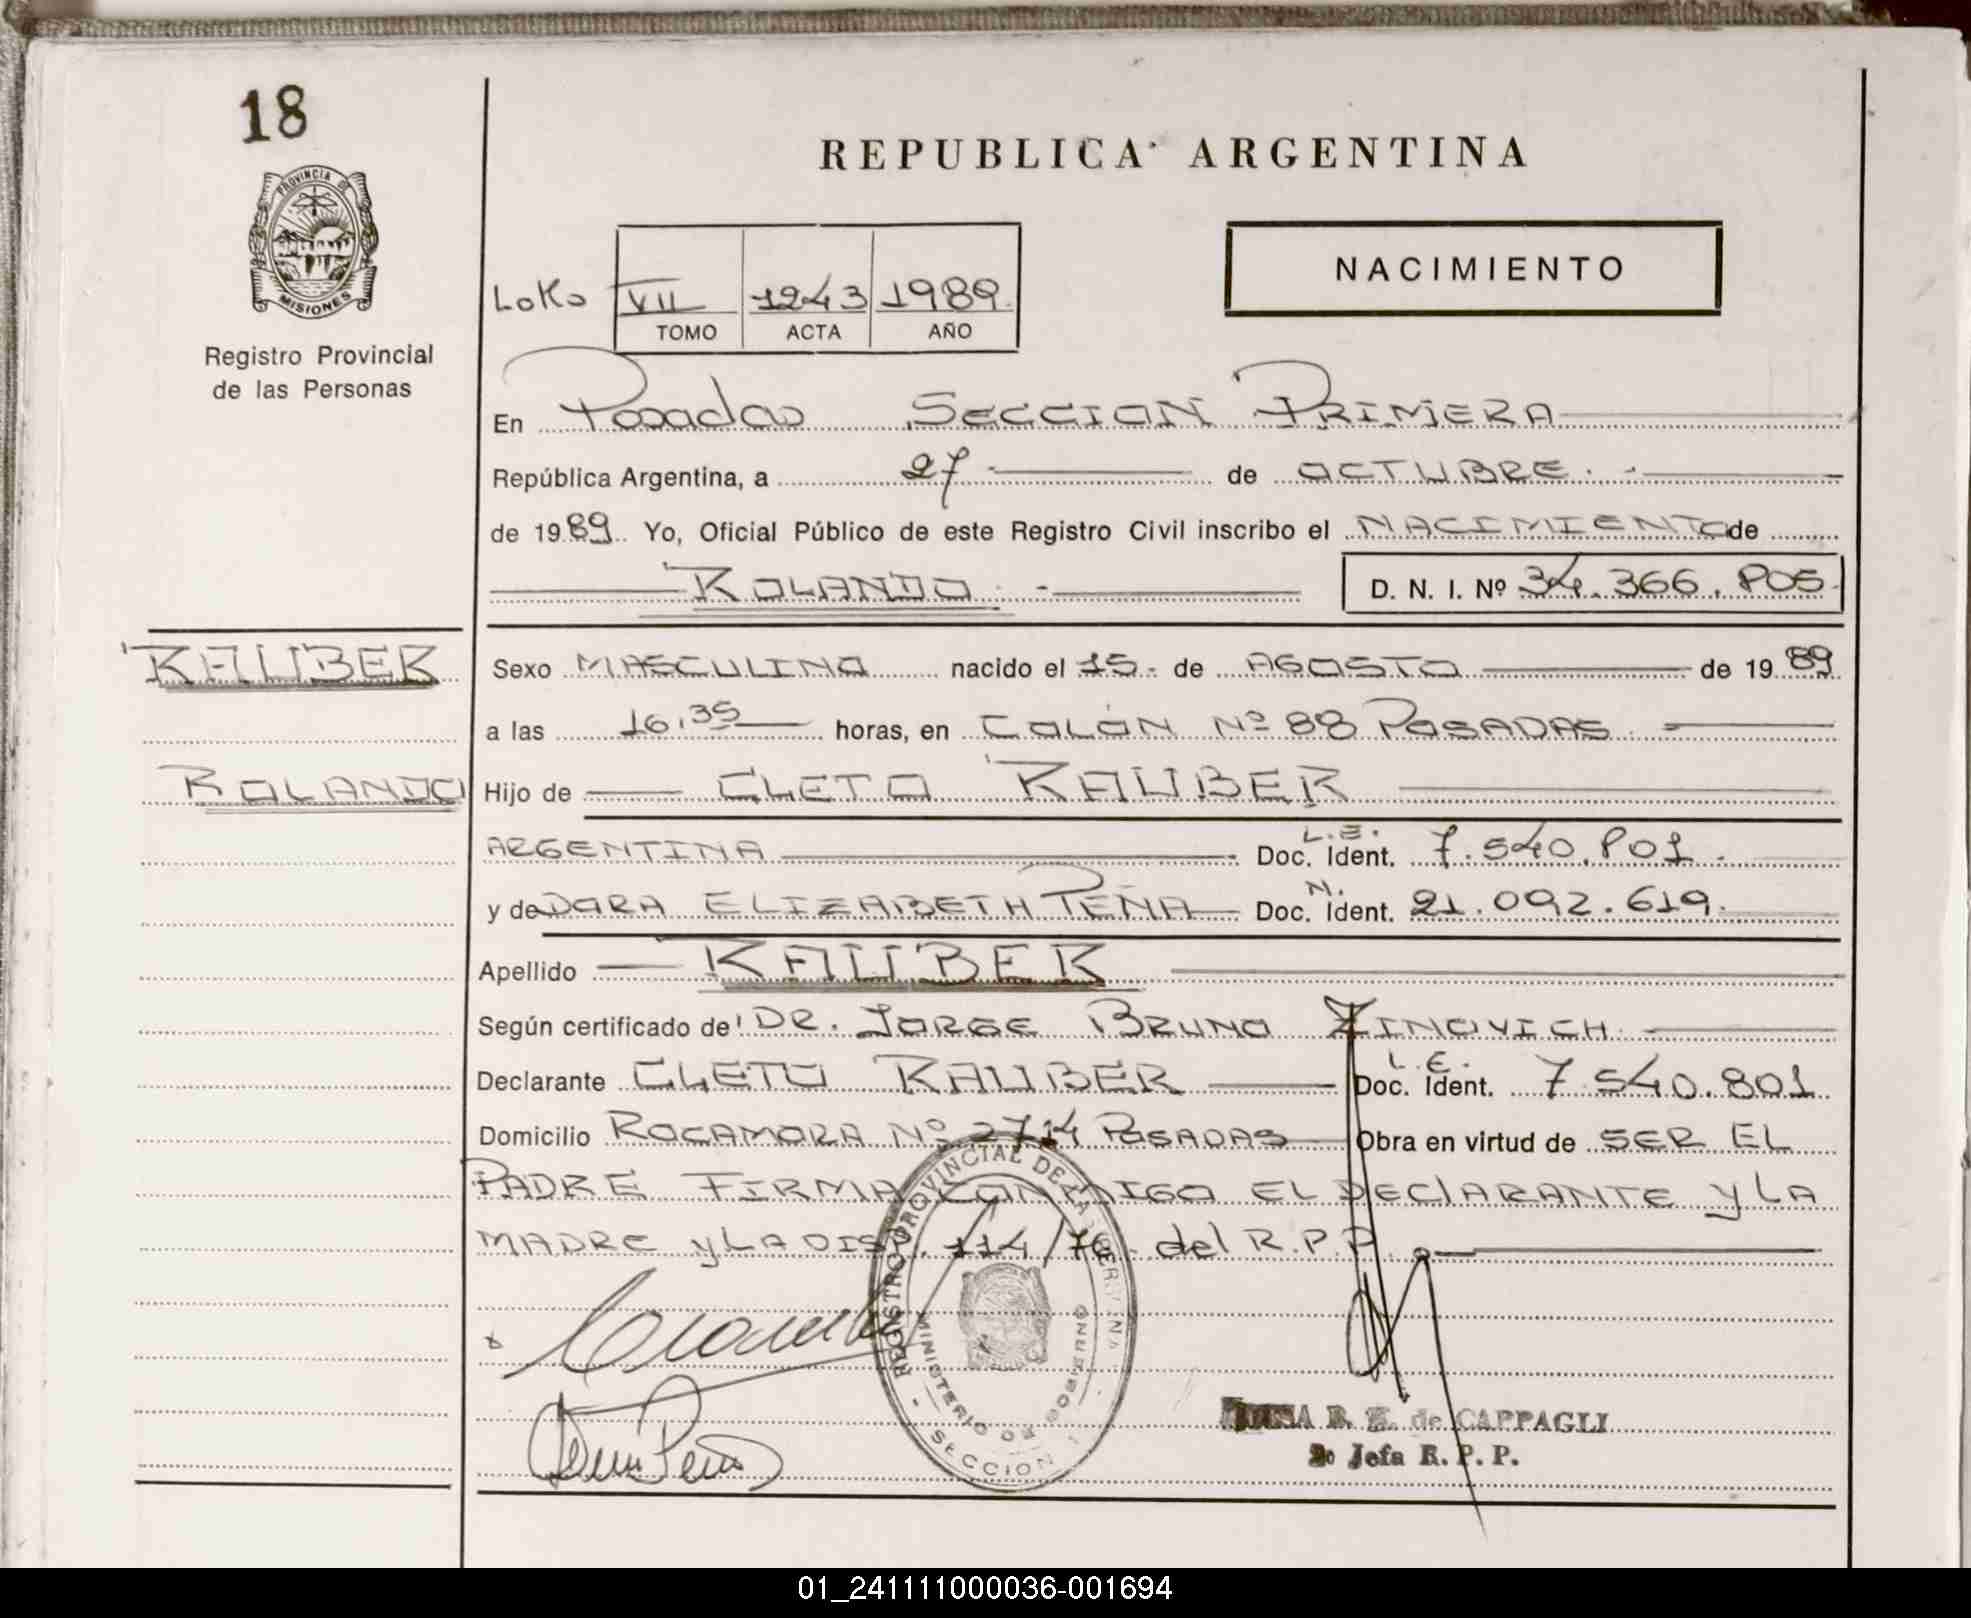 18
REPUBLICA ARGENTINA
PROVINCIA DE
MISIONES
Registro Provincial
de las Personas
NACIMIENTO
LoKo VII 1243 1989
TOMO ACTA AÑO
En Posadas SECCION PRIMERA
República Argentina, a 27 de OCTUBRE
de 1989 Yo, Oficial Público de este Registro Civil inscribo el NACIMIENTO de
ROLANDO D. N. I. Nº 34.366.805
KAUBER
Sexo MASCULINO nacido el 15 de AGOSTO de 1989
a las 16,35 horas, en COLÓN Nº 88 POSADAS
ROLANDO
Hijo de CLETO KAUBER
ARGENTINA Doc. Ident. L.E. 7.540.801
y de DORA ELIZABETH PEÑA Doc. Ident. N. 21.092.619
Apellido KAUBER
Según certificado de DR. JORGE BRUNO ZINOVICH
Declarante CLETO KAUBER Doc. Ident. L.E. 7.540.801
Domicilio ROCAMORA Nº 2714 POSADAS Obra en virtud de SER EL
PADRE FIRMA CONMIGO EL DEClARANTE y LA
MADRE y LA DISP. 114/76 del R.P.P.
REGISTRO PROVINCIAL DE LAS PERSONAS
MINISTERIO DE GOBIERNO
SECCION 1
B. de CAPPAGLI
2o Jefa R. P. P.
01_241111000036-001694